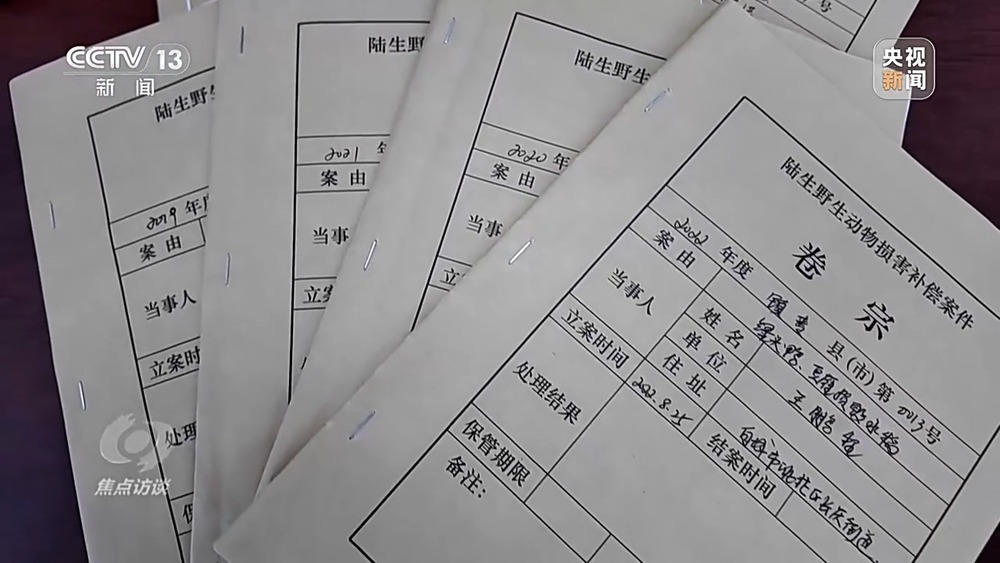 CCTV 13
新闻
央视
新闻
陆生野生
2019 年度
案由
当事人
立案时
处理
陆生野生
2021 年
案由
当事
立案
陆生野生
2020 年
案由
当事
立案
陆生野生动物损害补偿案件
卷宗
2022 年度 县(市)第 0013号
案由 绿头鸭、豆雁损毁水稻
当事人
姓名 王鹏
单位
住址
立案时间 2022.8.25 结案时间
处理结果
保管期限
备注:
焦点访谈